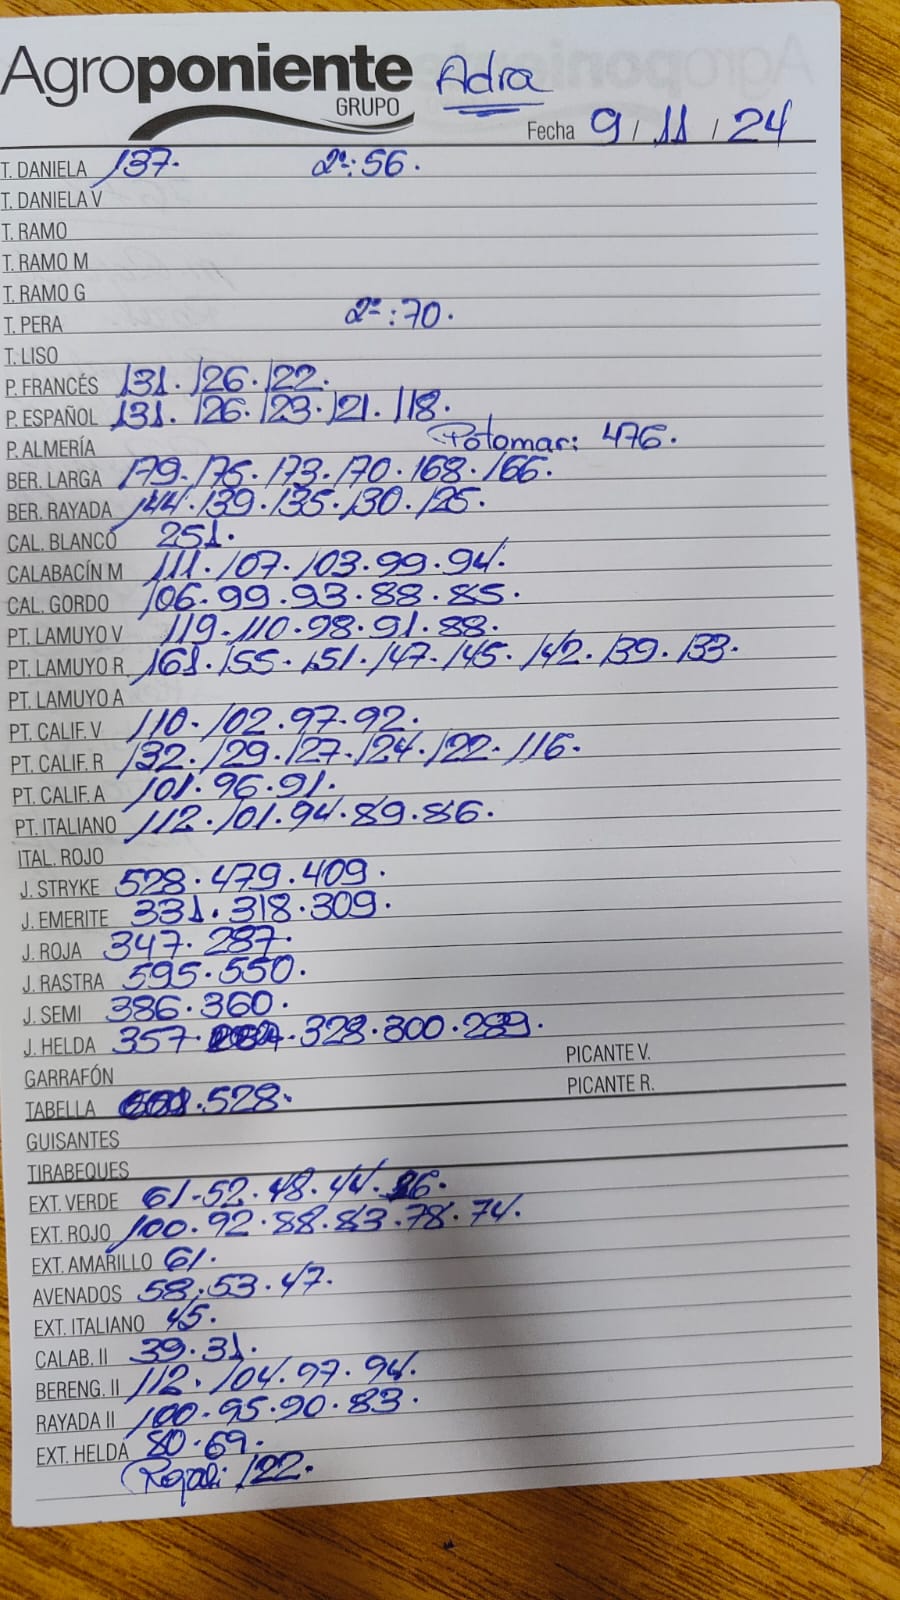 Agroponiente Adra
GRUPO
Fecha 9 / 11 / 24
T. DANIELA 137. 2ª: 56.
T. DANIELA V
T. RAMO
T. RAMO M
T. RAMO G
T. PERA 2ª: 70.
T. LISO
P. FRANCÉS 131. 126. 122.
P. ESPAÑOL 131. 126. 123. 121. 118.
P. ALMERÍA Potomar: 476.
BER. LARGA 179. 175. 173. 170. 168. 166.
BER. RAYADA 144. 139. 135. 130. 125.
CAL. BLANCO 251.
CALABACÍN M 111. 107. 103. 99. 94.
CAL. GORDO 106. 99. 93. 88. 85.
PT. LAMUYO V 119. 110. 98. 91. 88.
PT. LAMUYO R 161. 155. 151. 147. 145. 142. 139. 133.
PT. LAMUYO A
PT. CALIF. V 110. 102. 97. 92.
PT. CALIF. R 132. 129. 127. 124. 122. 116.
PT. CALIF. A 101. 96. 91.
PT. ITALIANO 112. 101. 94. 89. 86.
ITAL. ROJO
J. STRYKE 528. 479. 409.
J. EMERITE 331. 318. 309.
J. ROJA 347. 287.
J. RASTRA 595. 550.
J. SEMI 386. 360.
J. HELDA 357. 328. 300. 289.
GARRAFÓN PICANTE V.
TABELLA 528. PICANTE R.
GUISANTES
TIRABEQUES
EXT. VERDE 61. 52. 48. 44.
EXT. ROJO 100. 92. 88. 83. 78. 74.
EXT. AMARILLO 61.
AVENADOS 58. 53. 47.
EXT. ITALIANO 45.
CALAB. II 39. 31.
BERENG. II 112. 104. 97. 94.
RAYADA II 100. 95. 90. 83.
EXT. HELDA 80. 69.
122.